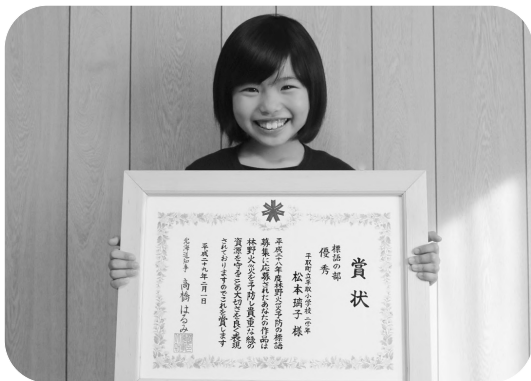 賞状
標語の部
優秀
平取町立平取小学校 二学年
松本 璃子 様
平成二十八年度林野火災予防の標語
募集に応募されたあなたの作品は
林野火災を予防し貴重な緑の
資源を守ることの大切さを良く表現
されておりますのでこれを賞します
平成二十九年二月一日
北海道知事 高橋はるみ